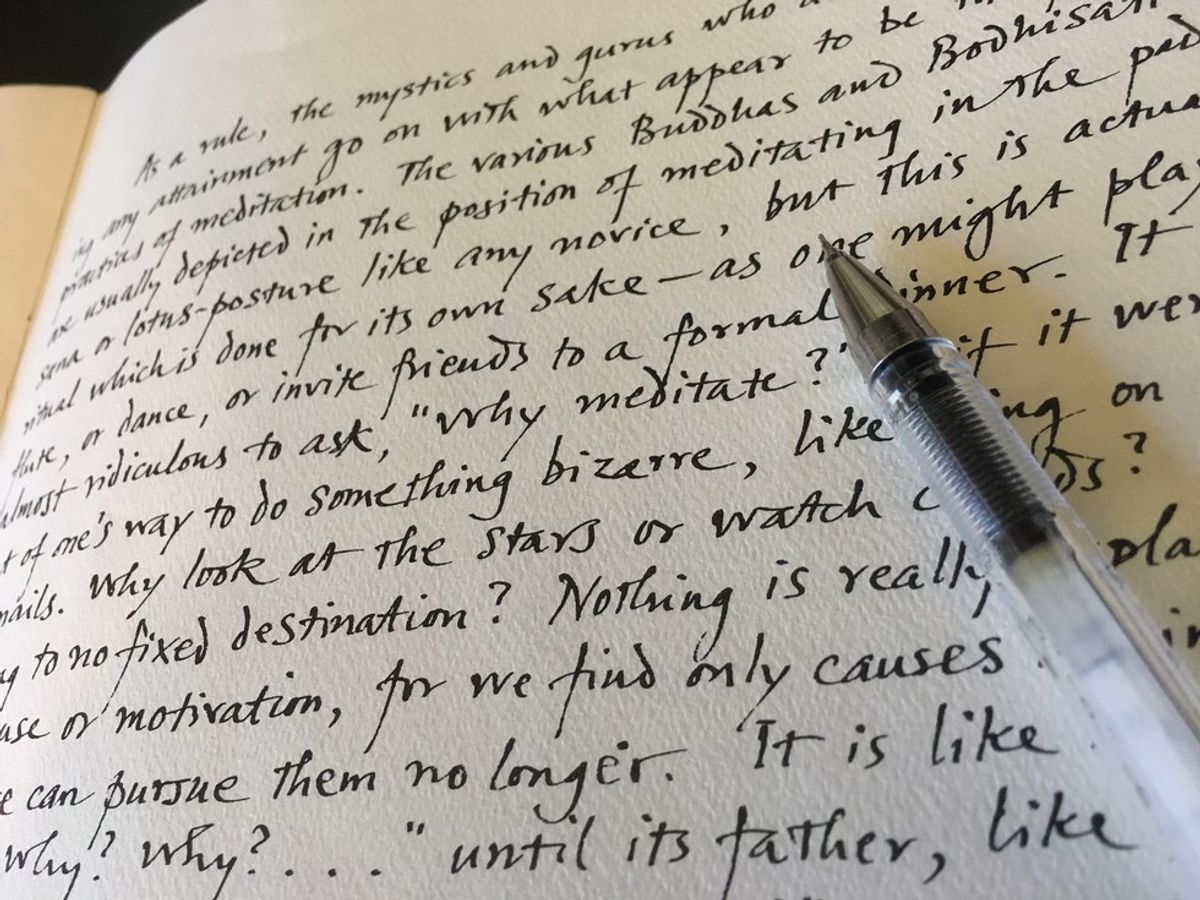 As a rule, the mystics and gurus who
ing any attainment go on with what appear to be
practices of meditation. The various Buddhas and Bodhisat
are usually depicted in the position of meditating in the pad
sana or lotus-posture like any novice, but this is actua
ritual which is done for its own sake—as one might play
flute, or dance, or invite friends to a formal dinner. It
almost ridiculous to ask, "Why meditate?" if it wer
t of one's way to do something bizarre, like ing on
nails. Why look at the stars or watch c ds?
g to no fixed destination? Nothing is really pla
use or motivation, for we find only causes in
e can pursue them no longer. It is like
why? why? . . . " until its father, like